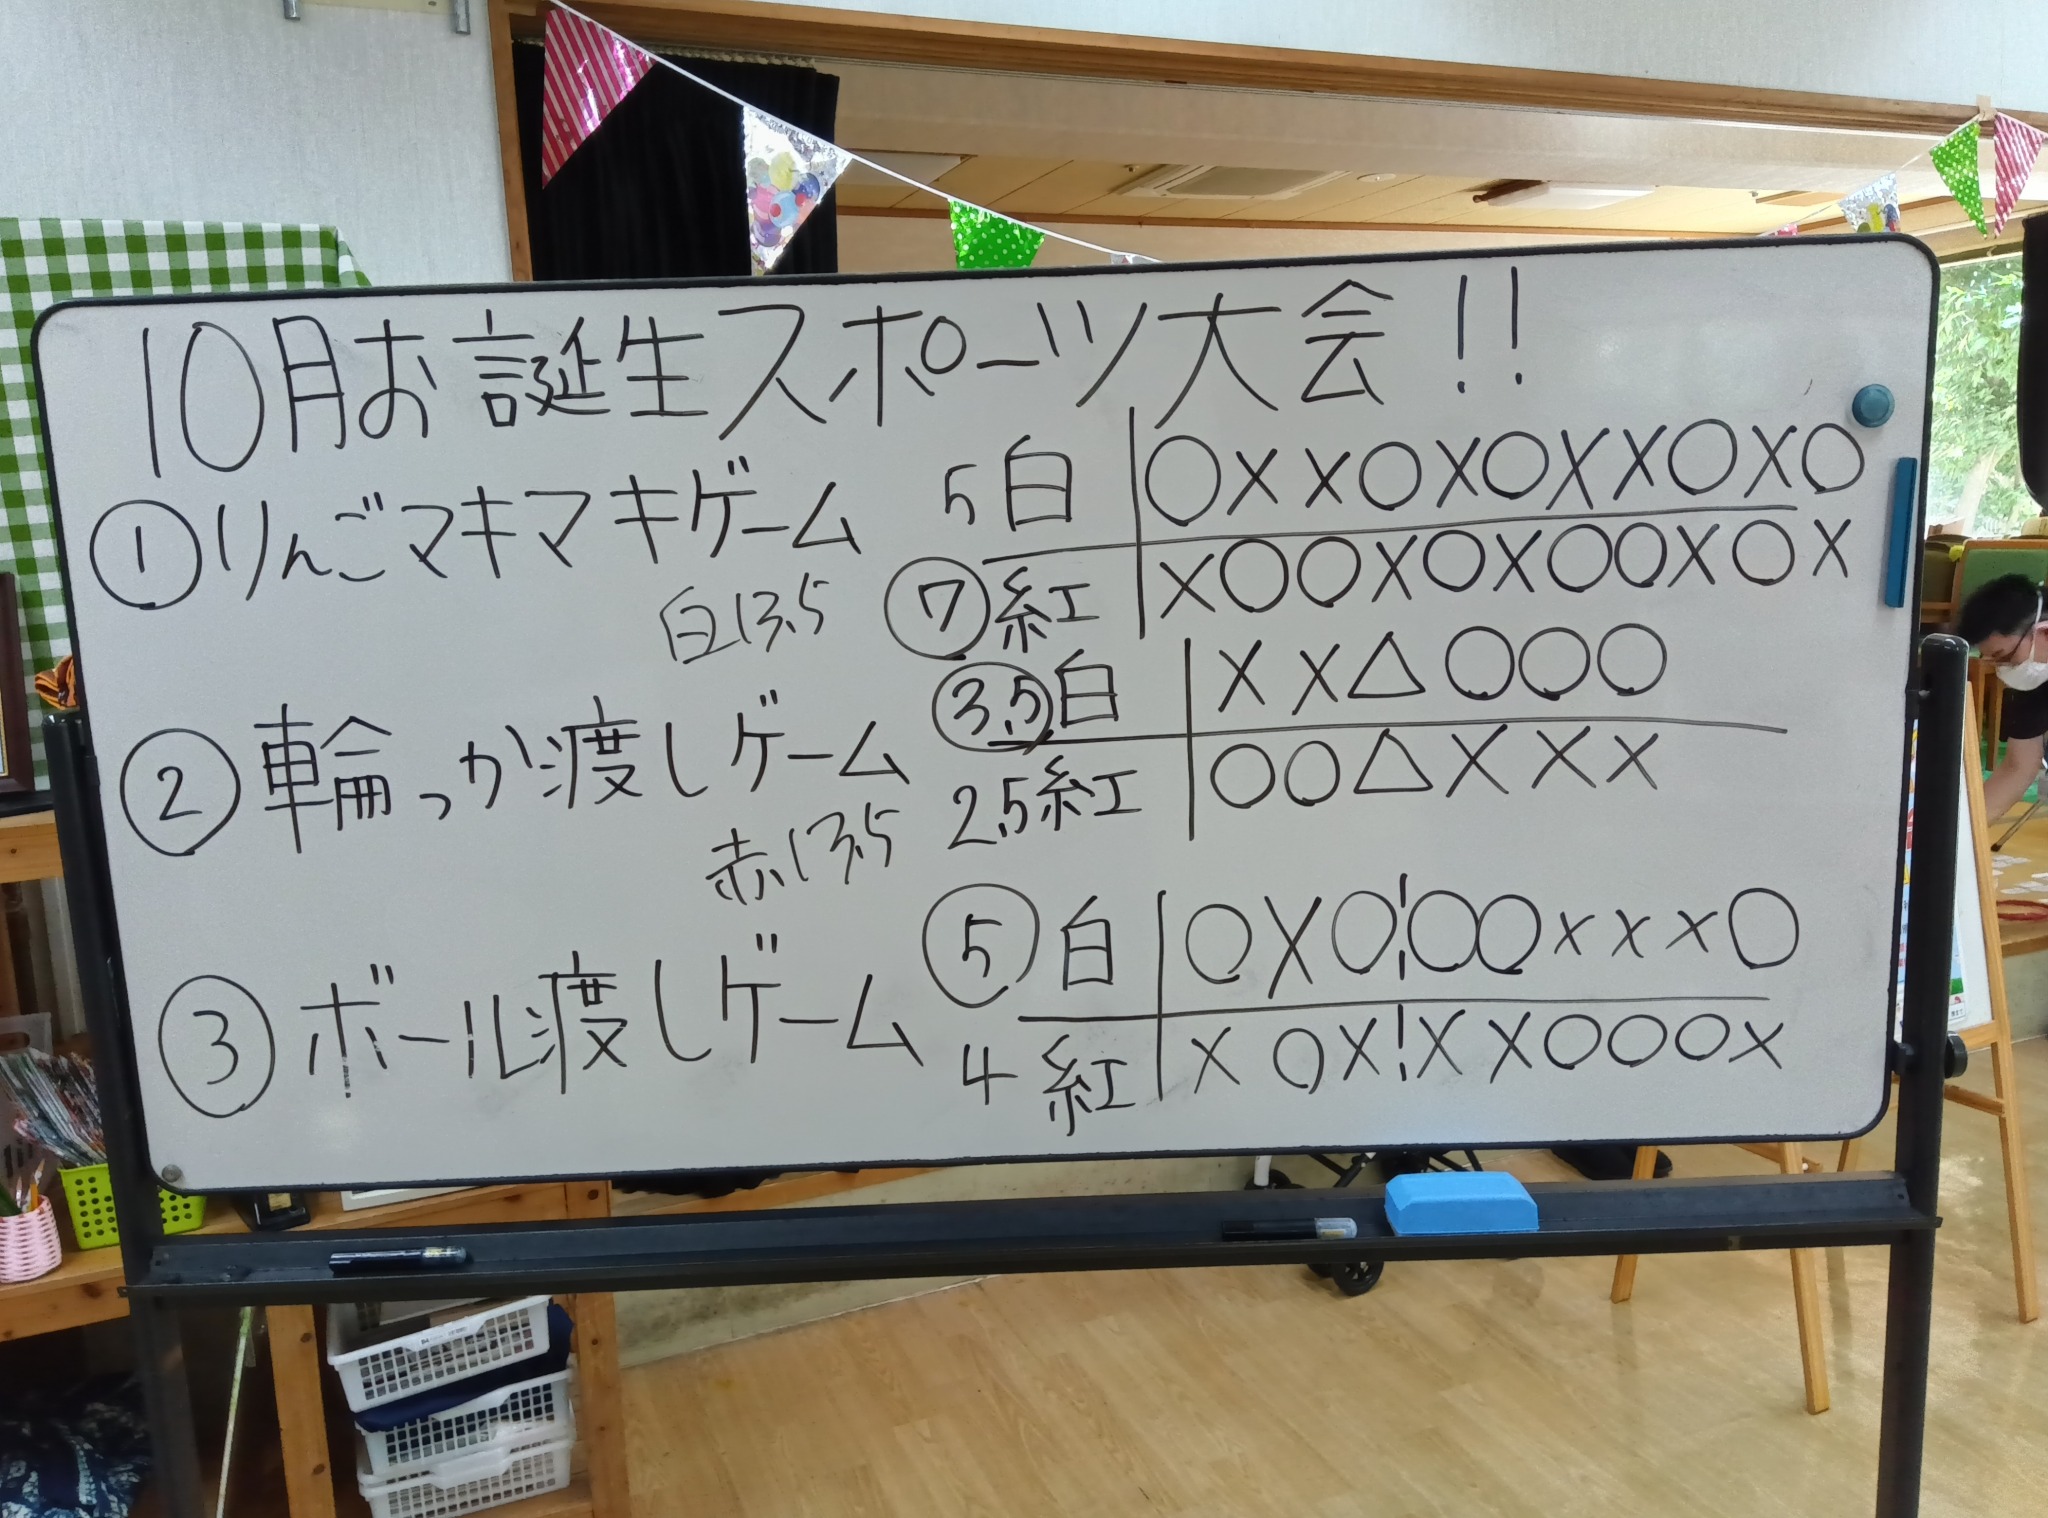 10月お誕生スポーツ大会!!
①りんごマキマキゲーム
5白 ○××○×○××○×○
⑦紅 ×○○×○×○○×○×
白13.5
②輪っか渡しゲーム
3.5白 ××△○○○
2.5紅 ○○△×××
赤13.5
③ボール渡しゲーム
⑤白 ○×○¦○○×××○
4紅 ×○×¦××○○○×